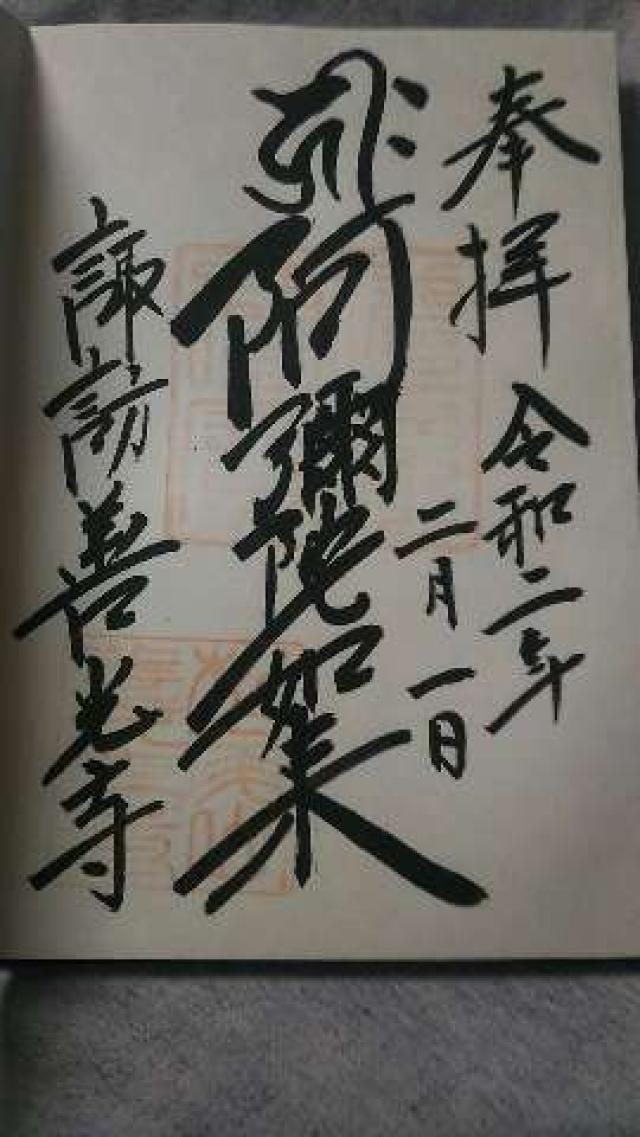 奉拝 令和二年
二月一日
阿彌陀如来
諏訪善光寺